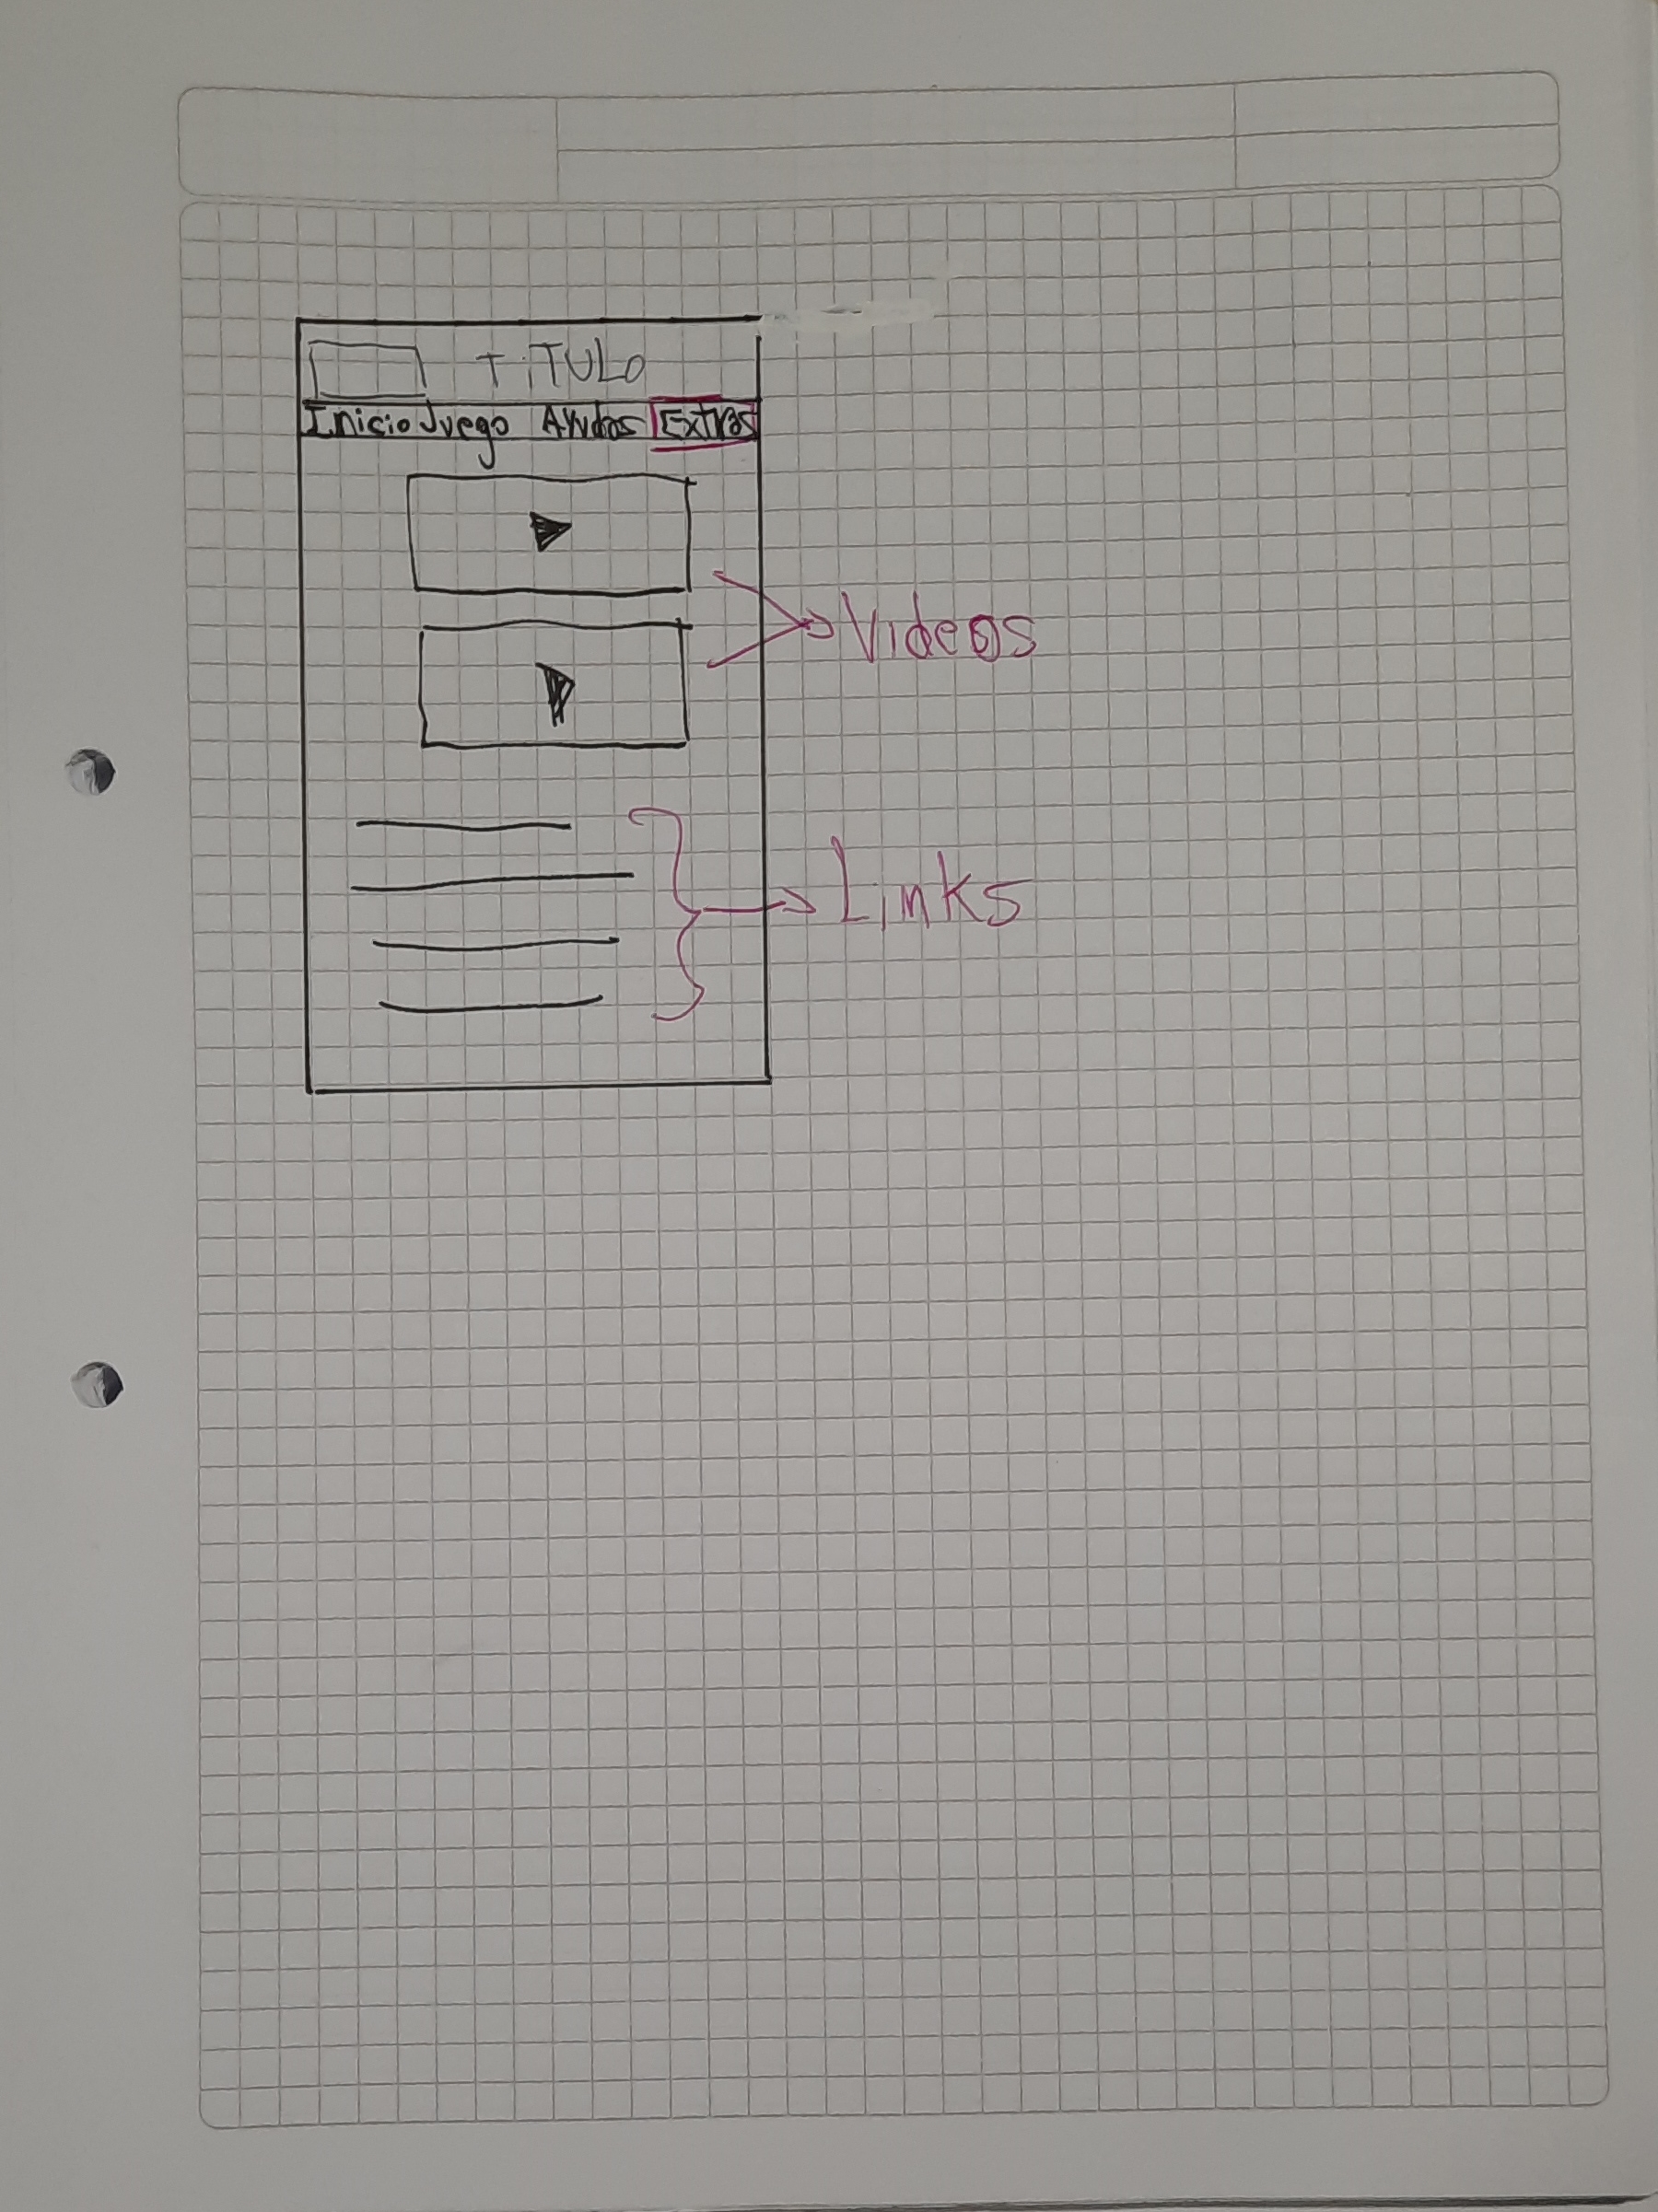 TiTULO
Inicio Juego Ayudas Extras
Videos
Links